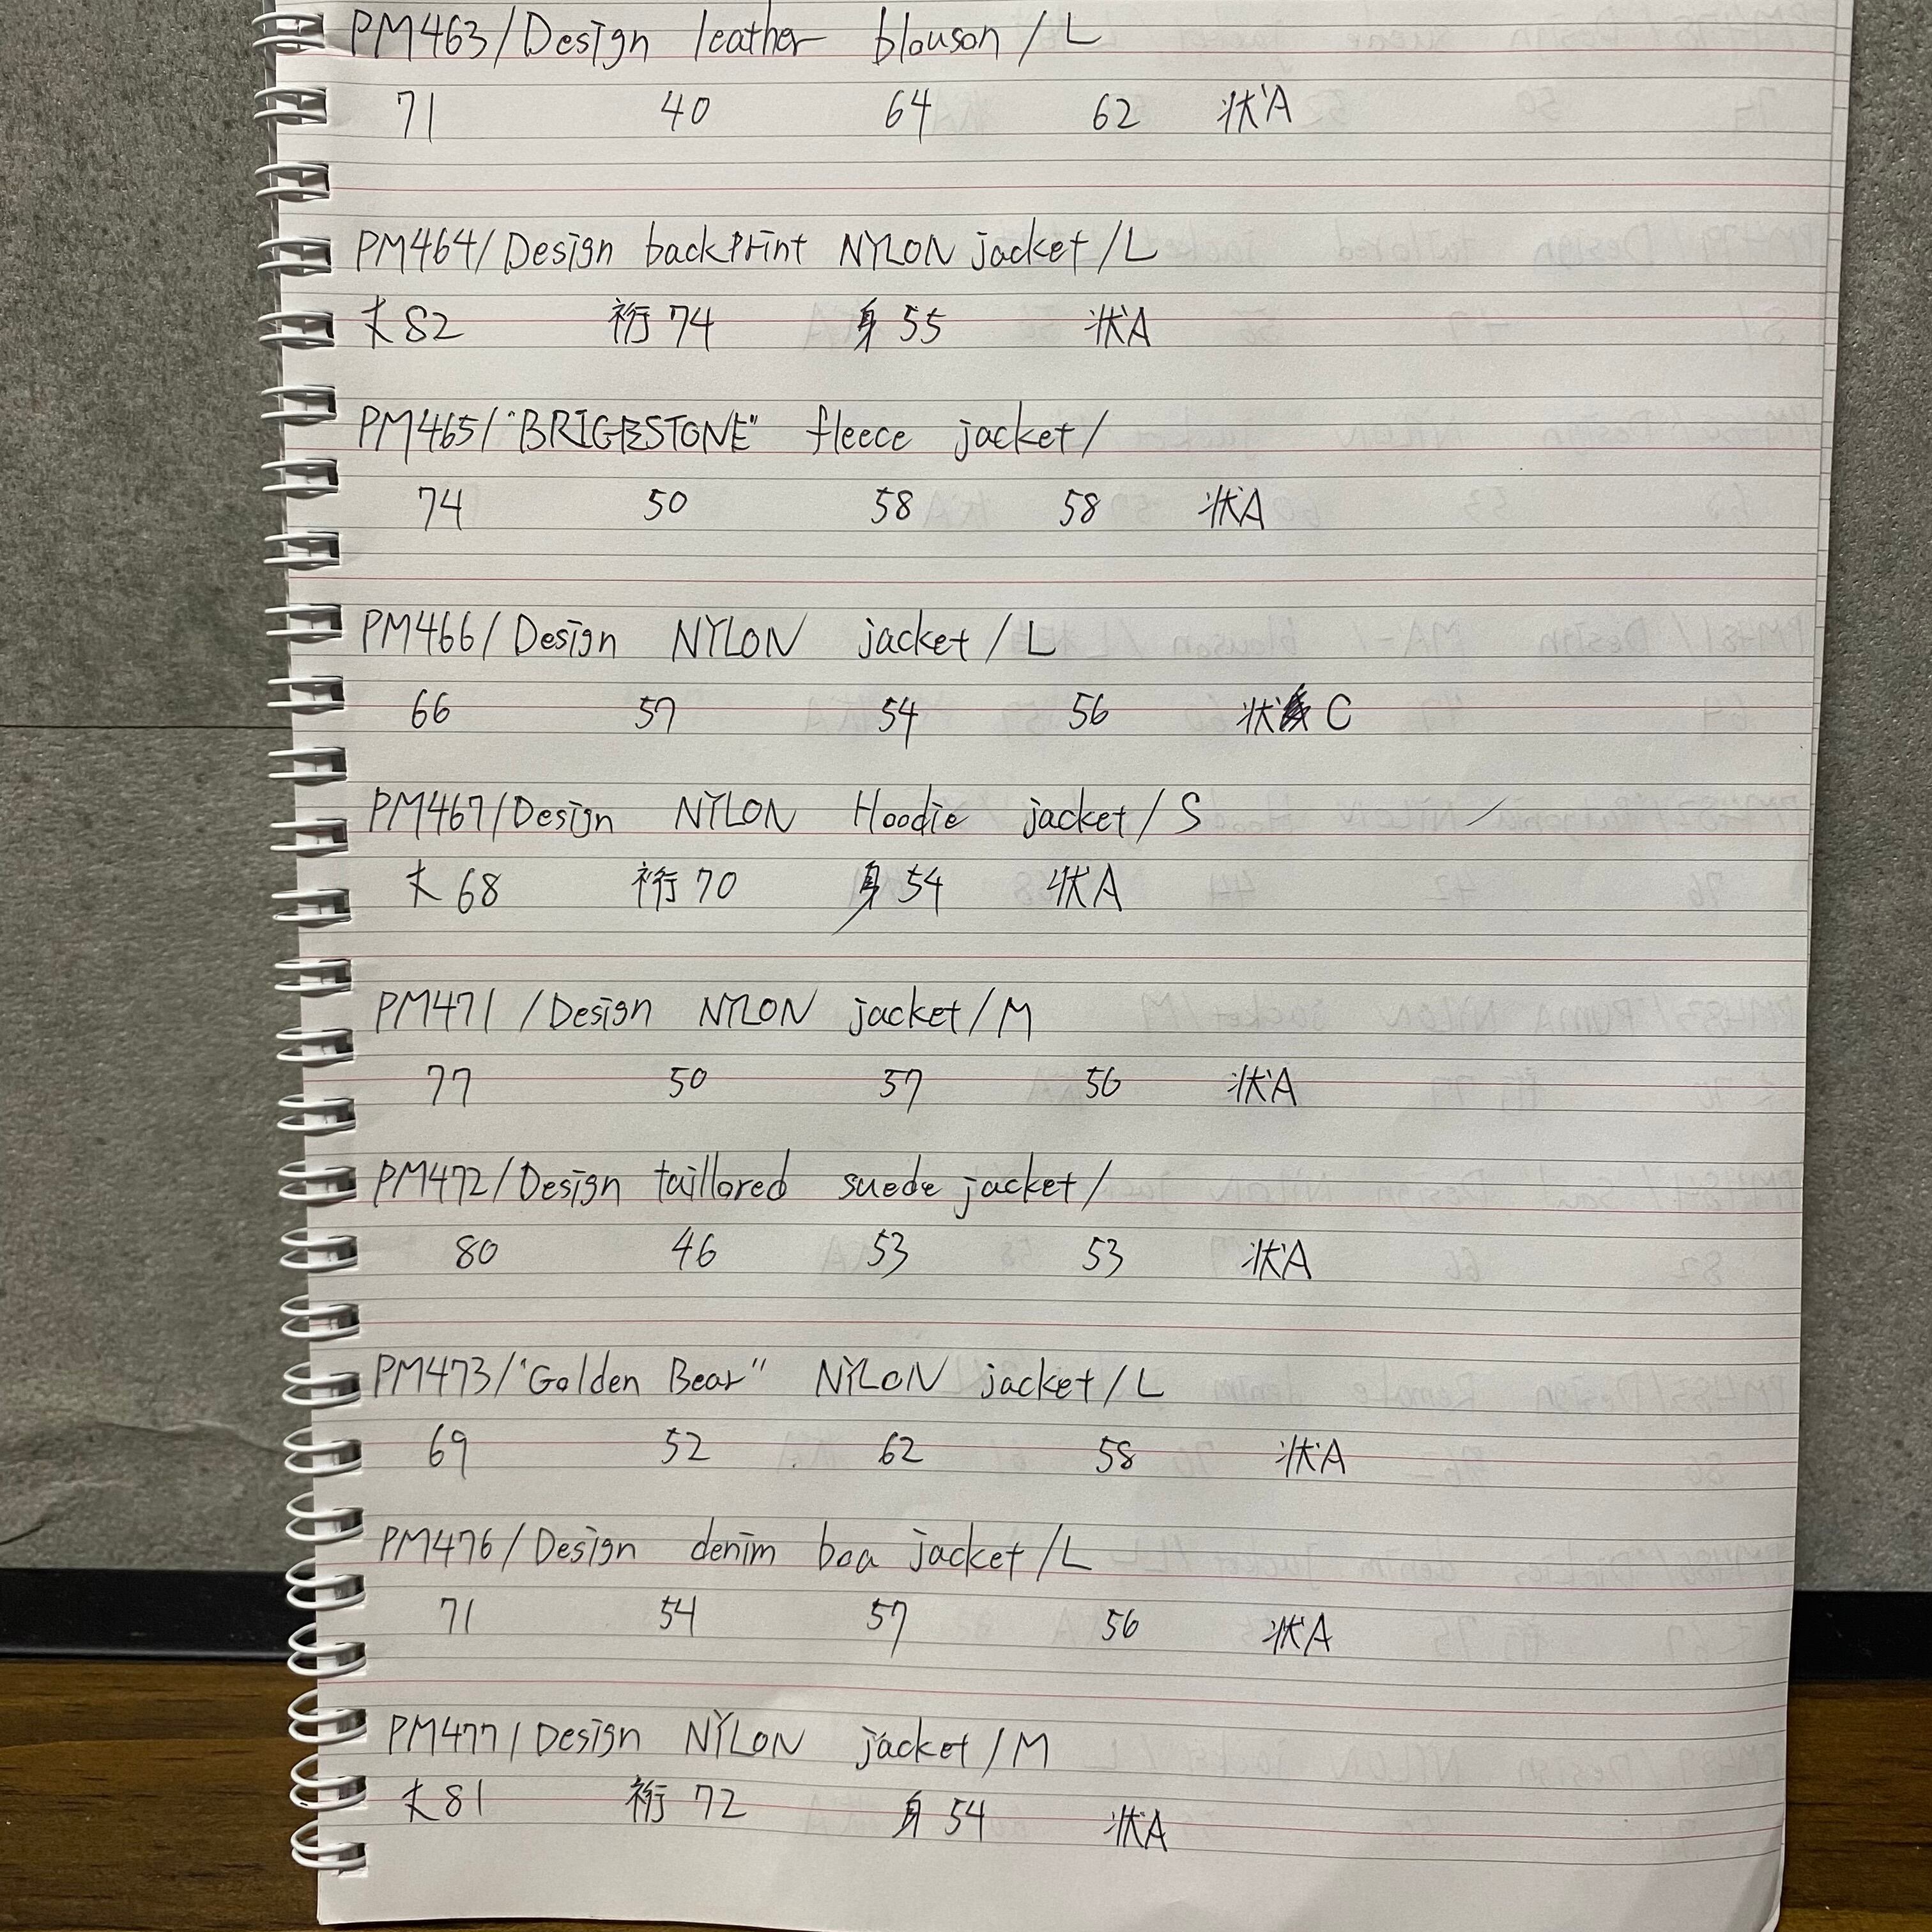 PM463/Design leather blouson/L
71 40 64 62 状A
PM464/Design backprint NYLON jacket/L
丈82 裄74 身55 状A
PM465/"BRIGESTONE" fleece jacket/
74 50 58 58 状A
PM466/Design NYLON jacket/L
66 57 54 56 状 C
PM467/Design NYLON Hoodie jacket/S
丈68 裄70 身54 状A
PM471/Design NYLON jacket/M
77 50 57 56 状A
PM472/Design taillored suede jacket/
80 46 53 53 状A
PM473/"Golden Bear" NYLON jacket/L
69 52 62 58 状A
PM476/Design denim boa jacket/L
71 54 57 56 状A
PM477/Design NYLON jacket/M
丈81 裄72 身54 状A